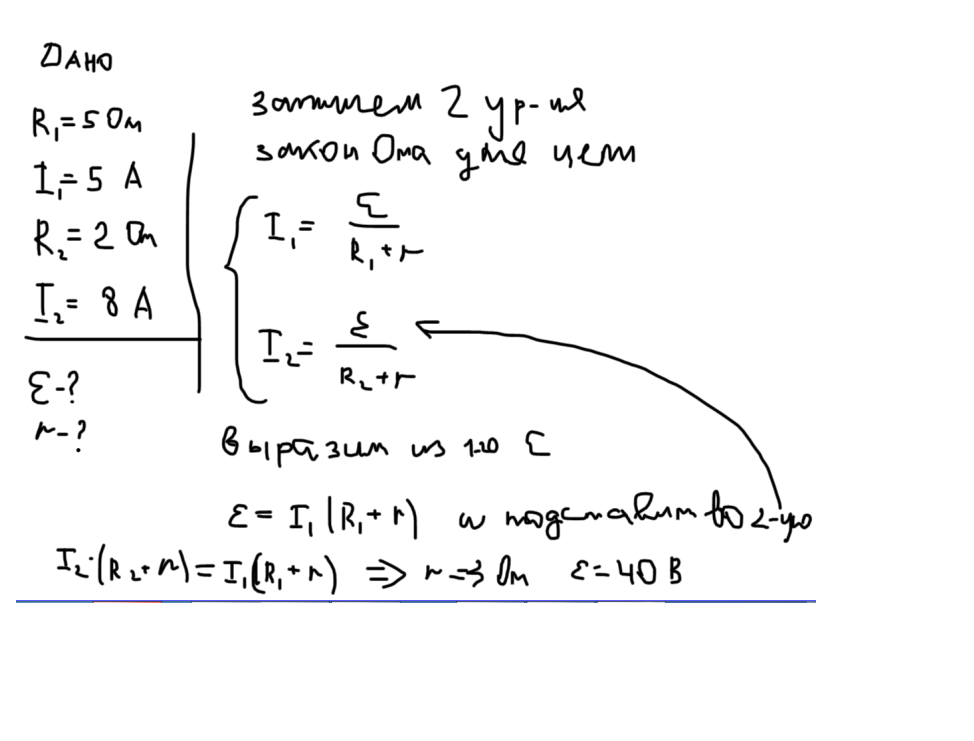 Дано
R₁=5 Ом
I₁=5 А
R₂=2 Ом
I₂= 8 А
Ɛ-?
r-?
запишем 2 ур-ия
закон Ома для цепи
I₁= Ɛ / R₁+r
I₂= Ɛ / R₂+r
выразим из 1-го Ɛ
Ɛ= I₁(R₁+r) и подставим во 2-ую
I₂·(R₂+r)=I₁(R₁+r) => r=3 Ом Ɛ=40 В